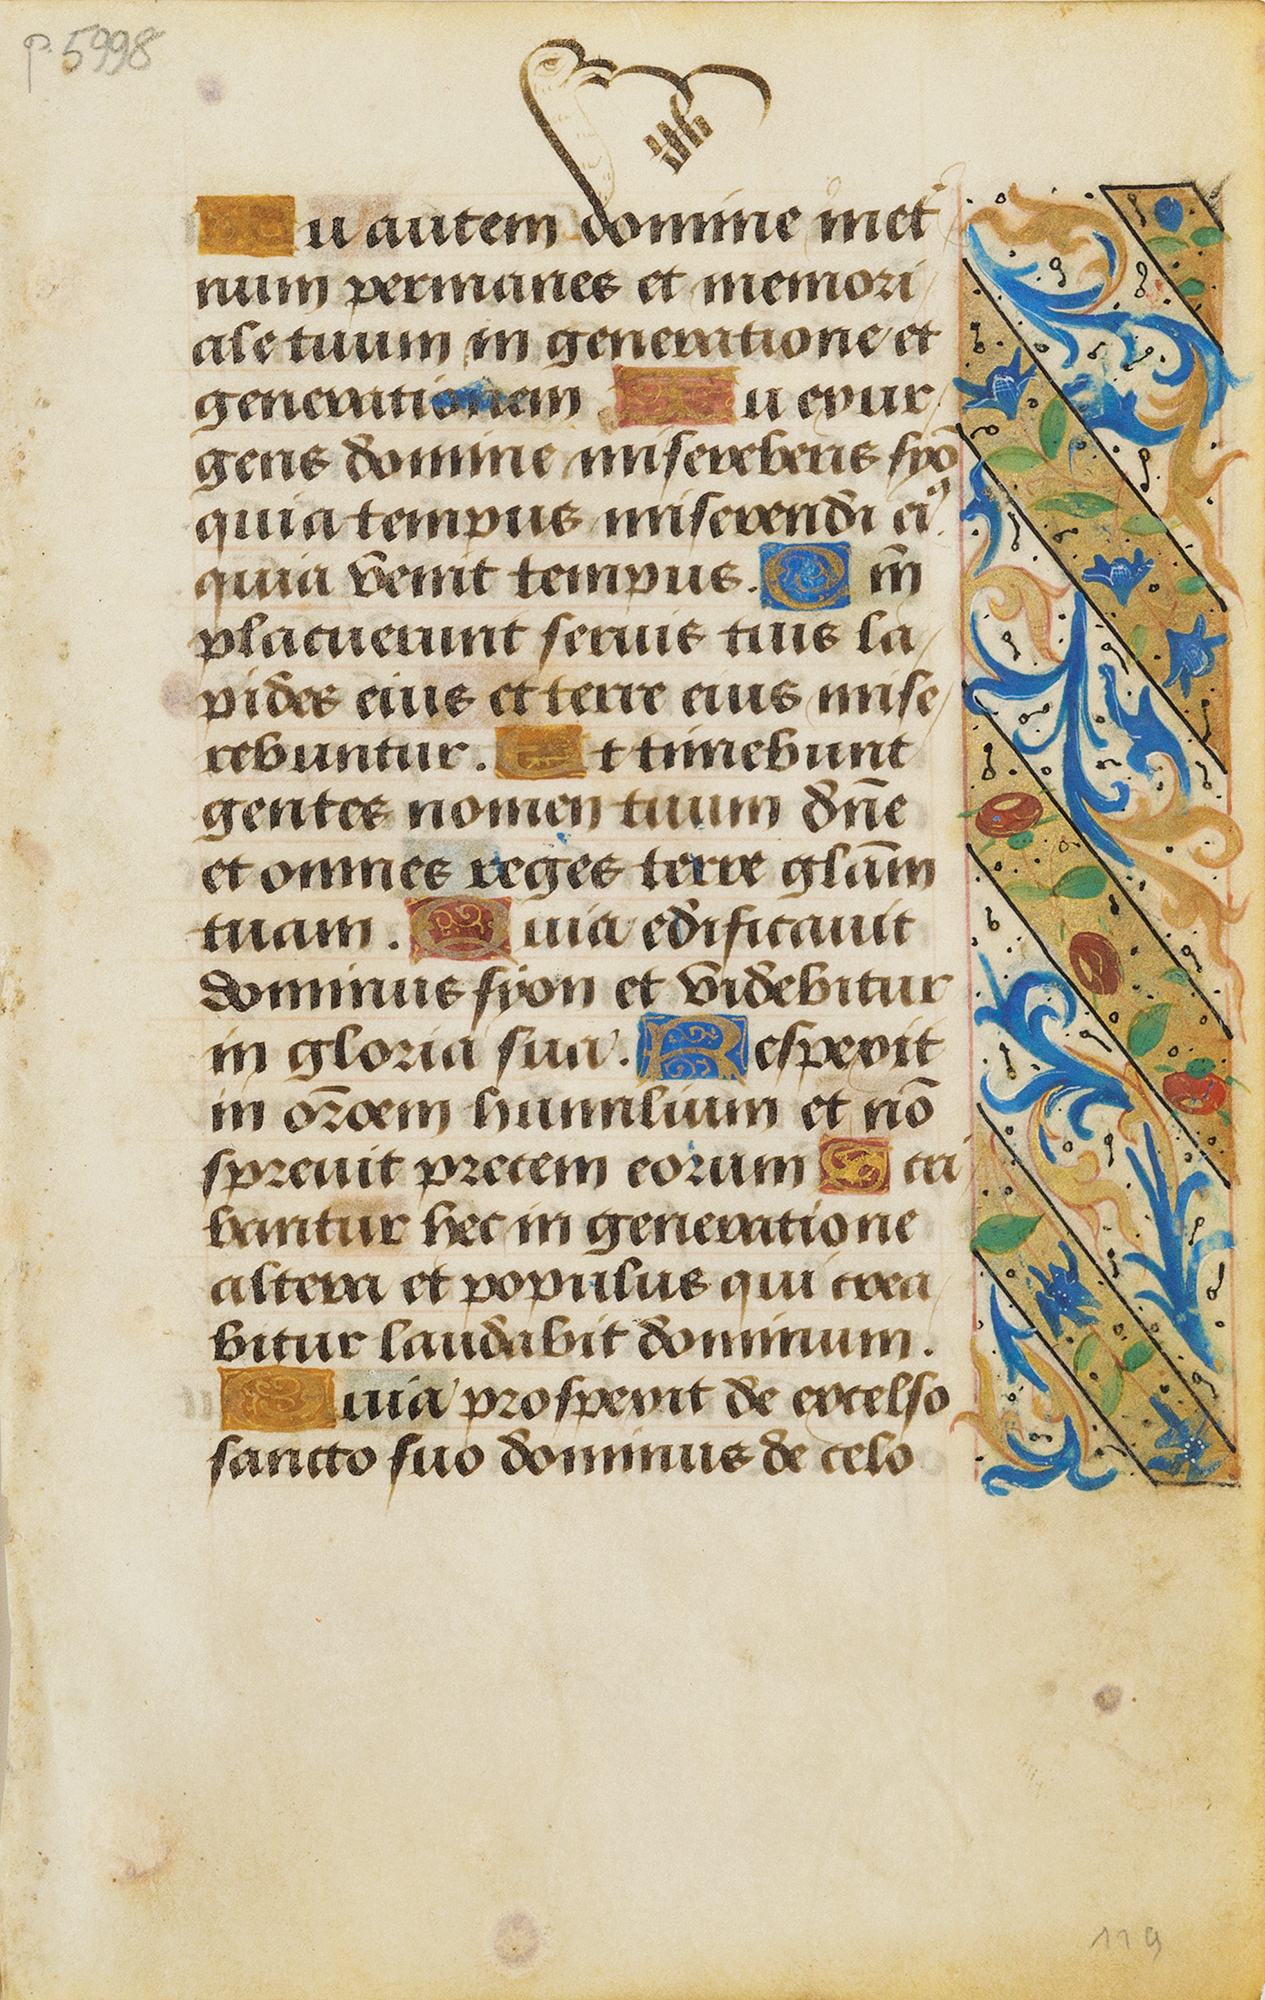 p. 5998
Tu autem domine inet
num permanes et memori
ale tuum in generatione et
generationem Tu exur
gens domine misereberis syō
quia tempus miserendi eiꝰ
quia vēnit tempus. Qm̄
placuerunt seruis tuis la
pides eius et terre eius mise
rebuntur. Et timebunt
gentes nomen tuum dn̄e
et omnes reges terre glām
tuam. Quia edificauit
dominus syon et videbitur
in gloria sua. Respexit
in or̄oem humilium et nō
spreuit precem eorum Scri
bantur hec in generatione
altera et populus qui crea
bitur laudabit dominum.
Quia prospexit de excelso
sancto suo dominus de celo
119